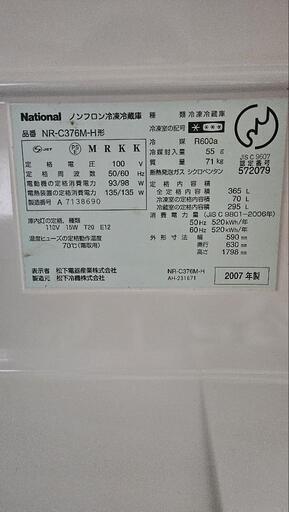 National ノンフロン冷凍冷蔵庫
品番 NR-C376M-H形
JET PS E MRKK
定格電圧 100 V
定格周波数 50/60 Hz
電動機の定格消費電力 93/98 W
電熱装置の定格消費電力 135/135 W
製造番号 A 7138690
庫内灯の定格、種類
110V 15W T20 E12
温度ヒューズの定格動作温度
70℃(霜取用)
表示者 松下電器産業株式会社
松下冷機株式会社
種類 冷凍冷蔵庫
冷凍室の記号
冷媒 R600a
冷媒封入量 55 g
質量 71 kg
断熱発泡ガス シクロペンタン
JIS C 9607
認定番号
572079
定格内容積
全定格内容積 365 L
冷凍室の定格内容積 70 L
冷蔵室の定格内容積 295 L
消費電力量 (JIS C 9801-2006年)
50 Hz 520 kWh/年
60 Hz 520 kWh/年
外形寸法 幅 590 mm
奥行 630 mm
高さ 1798 mm
NR-C376M-H
AH-231671
2007年製